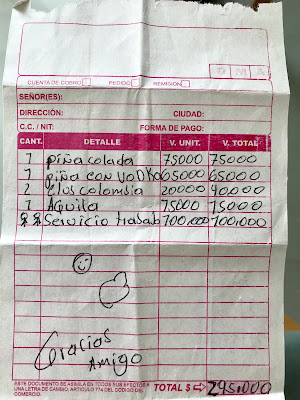 D M A
CUENTA DE COBRO PEDIDO REMISIÓN
SEÑOR(ES):
DIRECCIÓN: CIUDAD:
C.C. / NIT: FORMA DE PAGO:
CANT. DETALLE V. UNIT. V. TOTAL
1 piña colada 75000 75000
1 piña con vodka 65000 65000
2 colombia 20000 40000
1 Aguila 15000 15000
Servicio 100.000 100.000
Gracias
Amigo
ESTE DOCUMENTO SE ASIMILA EN TODOS SUS EFECTOS A
UNA LETRA DE CAMBIO, ARTICULO 774 DEL CÓDIGO DEL
COMERCIO.
TOTAL $ 295.000